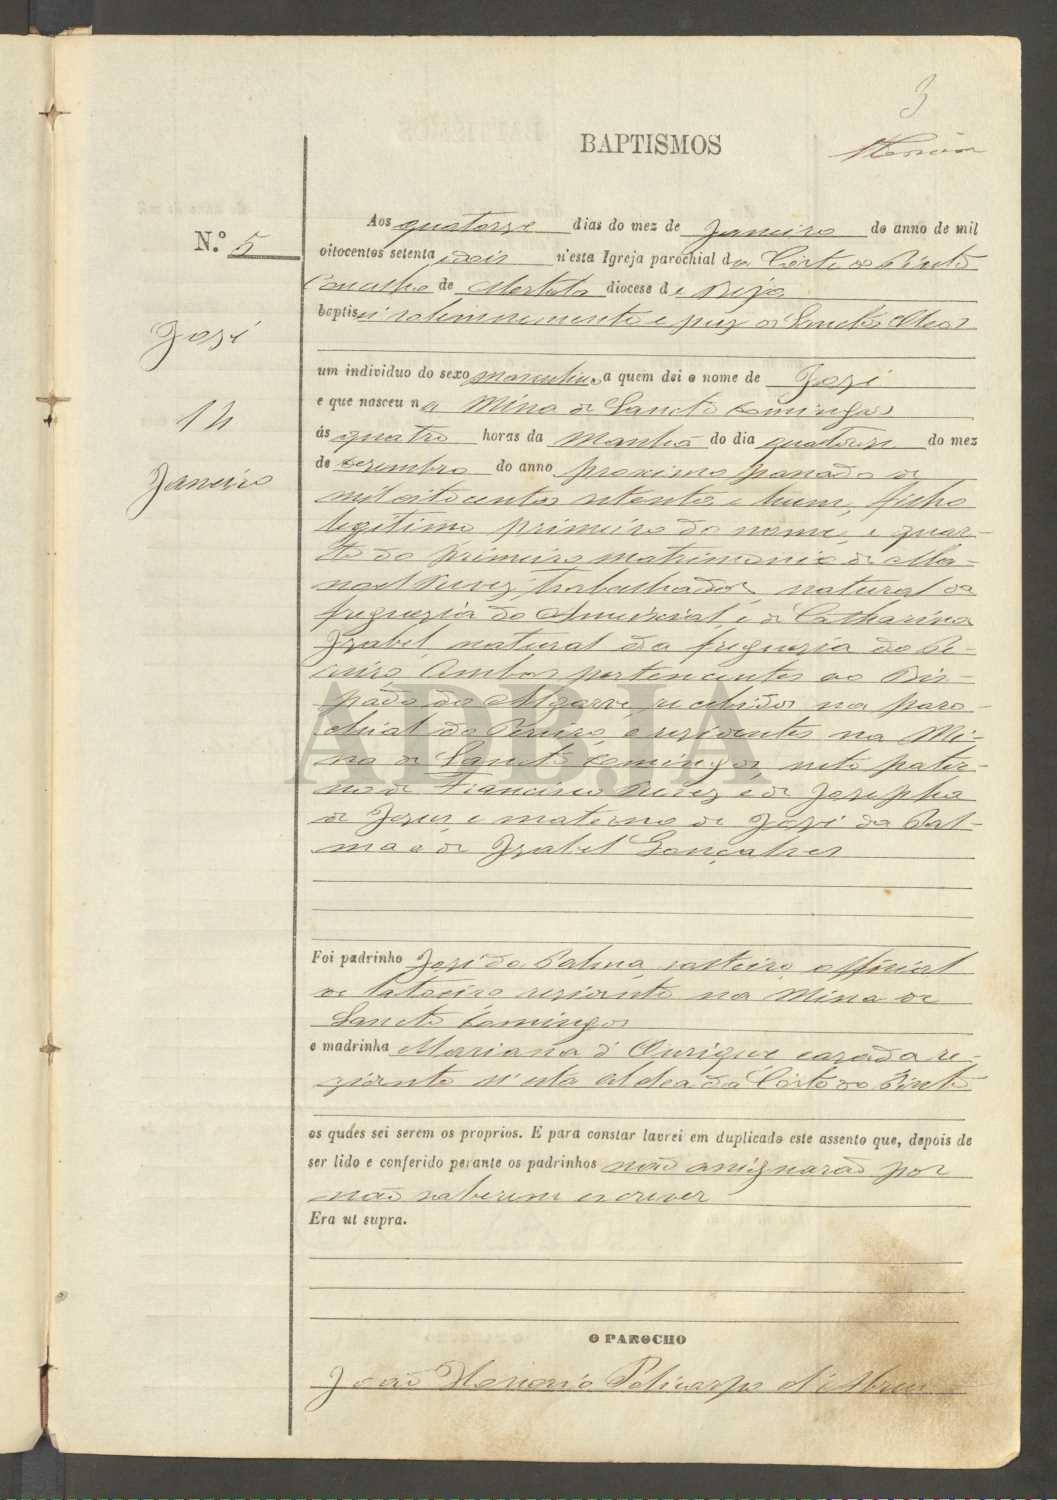 3
BAPTISMOS
N.º 5
José
14
Janeiro
Aos quatorze dias do mez de Janeiro do anno de mil
oitocentos setenta e dois n'esta Igreja parochial da Côrte do Pinto
Concelho de Mertola diocese de Beja
baptisei solemnemente e puz os Sanctos Oleos
um individuo do sexo masculino a quem dei o nome de José
e que nasceu na Mina de Sancto Domingos
ás quatro horas da Manhã do dia quatorze do mez
de Dezembro do anno proximo passado de
mil oitocentos setenta e hum, filho
legitimo primeiro do nome, e quar-
to do primeiro matrimonio de Ma-
noel Nunez, trabalhador, natural da
freguezia do Ameixial, e de Catharina
Izabel, natural da freguezia do Pe-
reiro, Ambos pertencentes ao Bis-
pado do Algarve, recebidos na paro-
chial do Pereiro, e rezidentes na Mi-
na de Sancto Domingos, neto pater-
no de Francisco Nunez e de Josepha
de Jezus, e materno de José da Pal-
ma e de Izabel Gonçalves
Foi padrinho José da Palma, solteiro, official
de latoeiro rezidente na Mina de
Sancto Domingos
e madrinha Marianna d'Ourique cazada re-
zidente n'esta Aldea da Côrte do Pinto
os quaes sei serem os proprios. E para constar lavrei em duplicado este assento que, depois de
ser lido e conferido perante os padrinhos não assignarão por
não saberem escrever
Era ut supra.
O PAROCHO
João Honorio Policarpo d'Abreu
ADBJA